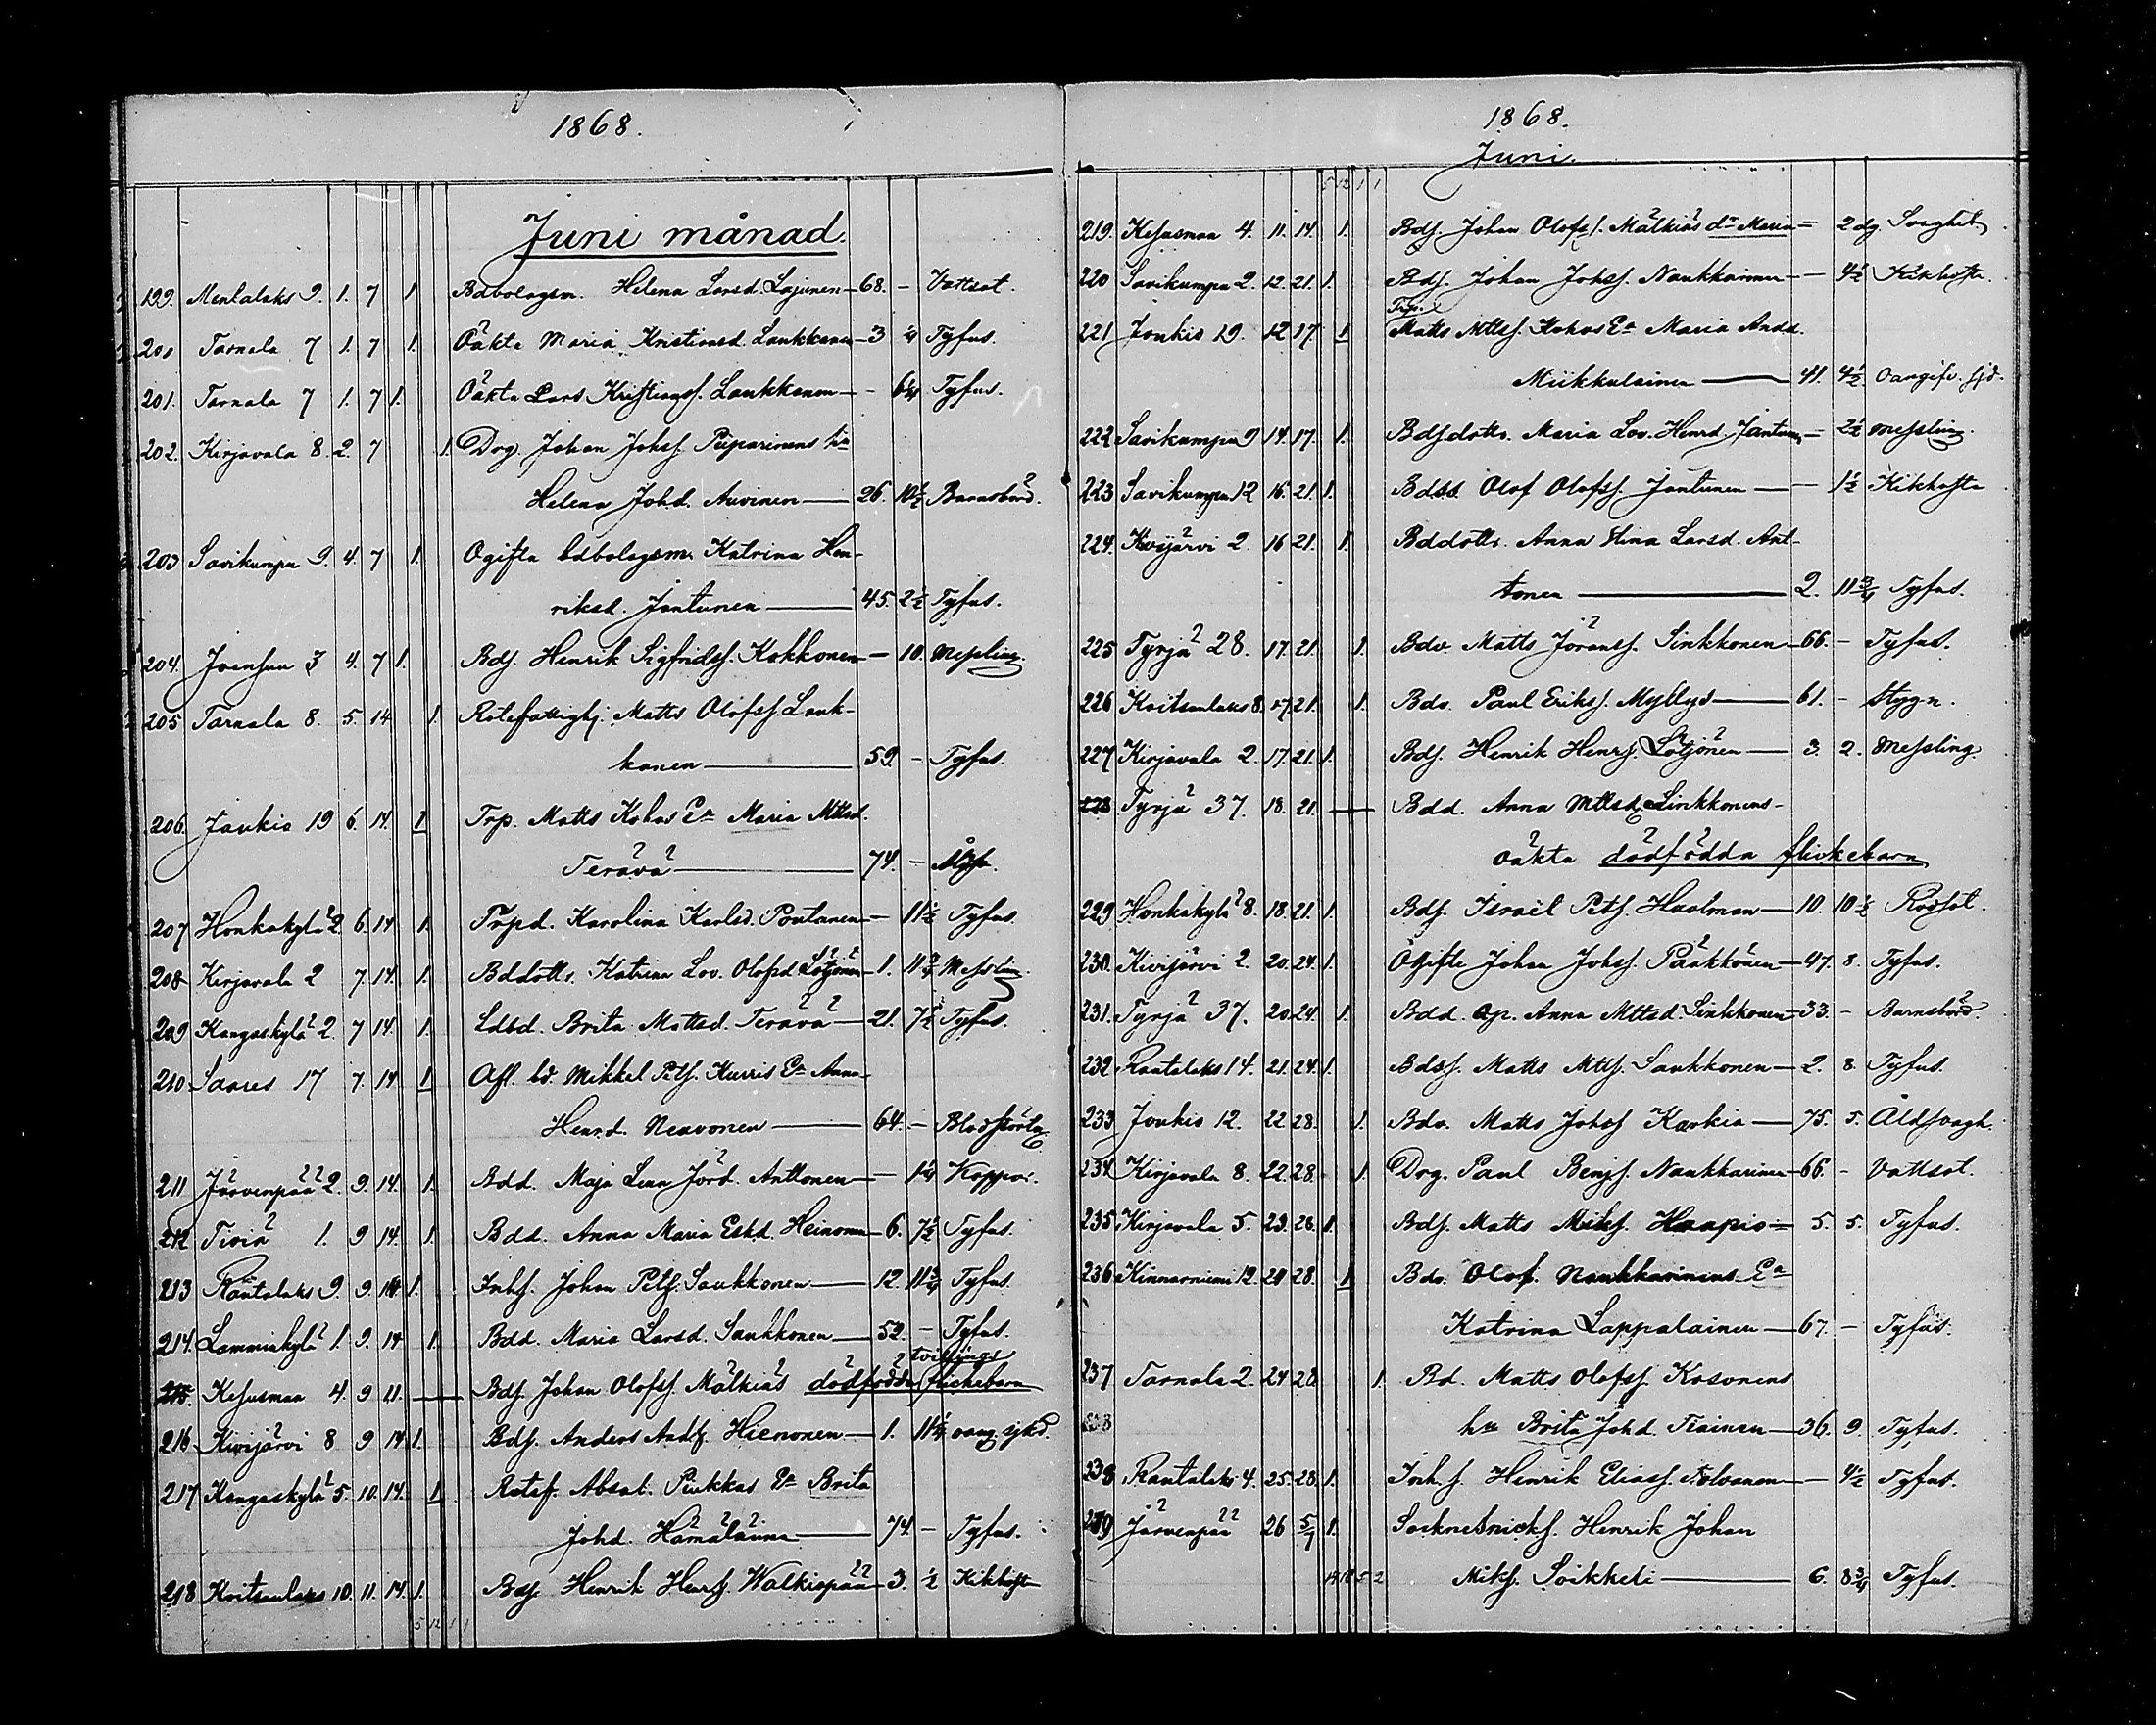 1868.
Juni månad.
199. Mentalaks 9. 1. 7 1 Bdbolagsm. Helena Larsd. Lajunen — 68. - Vattsot.
200 Tarnala 7 1. 7 1. Oäkta Maria Kristiansd. Laukkanen — 3 Tyfus.
201. Tarnala 7 1. 7 1. Oäkta Lars Kristianss. Laukkanen — - 6 1/4 Tyfus.
202. Kirjavala 8. 2. 7 1. Drg. Johan Johss. Piiparinens hu
Helena Johd. Auvinen — 26. 10 1/2 Barnsbörd.
203 Savikumpu 9. 4. 7 1. Ogifta bdbolagsm. Katrina Hen-
riksd. Jantunen — 45. 2 1/2 Tyfus.
204. Joensuu 3 4. 7 1. Bds. Henrik Sigfridss. Kokkonen — 10. Messling.
205 Tarnala 8. 5. 14 1. Rotefattighj. Matts Olofss. Lauk-
kanen — 59 - Tyfus.
206. Jaukio 19 6. 14. 1 Trp. Matts Kohos Ea Maria Mttsd.
Terävä — 74. -
207 Honkakylä 2. 6. 14 1. Trpd. Karolina Karlsd. Poutanen — 11 1/2 Tyfus.
208 Kirjavala 2 7. 14. 1. Bddottr. Katrina Lov. Olofsd. Lötjönen — 1. 11 3/4 Messling.
209 Kangaskylä 2. 7 14. 1. Ldbd. Brita Mattsd. Terävä — 21. 7 1/2 Tyfus.
210 Saares 17 7. 14 1 Afl. bd. Mikkel Petss. Kurris Ea Anna
Henrd. Neuvonen — 64. - Blodstörtn.
211 Järvenpää 2. 9. 14. 1. Bdd. Maja Lena Jörd. Anttonen — 1 1/4 Koppor.
212 Tiviä 1. 9 14. 1. Bdd. Anna Maria Eskd. Heinonen — 6. 7 1/2 Tyfus.
213 Rautalaks 9. 9 14 1. Inhs. Johan Petss. Saukkonen — 12. 11 3/4 Tyfus.
214. Lamminkylä 1. 9. 14 1. Bdd. Maria Larsd. Saukkonen — 52. - Tyfus.
tvillings
215. Kesusmaa 4. 9 21. — Bds. Johan Olofss. Mälkiäs dödfödda flickebarn
216 Kivijärvi 8 9 14 1. Bds. Anders Andss. Hienonen — 1. 11 1/4 oang. sjkd.
217 Kangaskylä 5. 10. 14. 1 Rotef. Absal. Piukkas Ea Brita
Johd. Hämäläinen — 74. - Tyfus.
218 Koitsanlaks 10. 11. 14. 1. Bds. Henrik Henrss. Walkiapää — 3. 1/2 Kikhosta
5 12 1 1
1868.
Juni.
5 12 1 1
219. Kesusmaa 4. 11. 14. 1. Bds. Johan Olofss. Mälkiäs dr Maria — 2 dg. Svaghet.
220 Savikumpu 2. 12. 21. 1. Bds. Johan Johss. Naukkarinen — 4 1/2 Kikhosta.
Trp.
221 Joukio 19. 12 17. 1 Matts Mttss. Kohos Ea Maria Andd.
Miikkulainen — 41. 4 1/2 Oangifv. sjd.
222 Savikumpu 9 14. 17. 1. Bdsdottr. Maria Lov. Henrd. Jantunen — 2 1/2 Messling.
223 Savikumpu 12 16. 21. 1. Bdss Olof Olofss. Jantunen — 1 1/2 Kikhosta
224. Kivijärvi 2. 16 21. 1. Bddottr. Anna Stina Larsd. Ant-
tonen — 2. 11 3/4 Tyfus.
225 Tyrjä 28. 17. 21. 1. Bdv. Matts Jöranss. Sinkkonen — 66. - Tyfus.
226 Koitsanlaks 8. 17. 21. 1. Bdv. Paul Erikss. Myllys — 61. - Stygn.
227 Kirjavala 2. 17. 21. 1. Bds. Henrik Henrss. Lötjönen — 3. 2. Messling.
228 Tyrjä 37. 18. 21. — Bdd. Anna Mttsd. Sinkkonens
oäkta dödfödda flickebarn
229 Honkakylä 8. 18. 21. 1. Bds. Israël Petss. Haalman — 10. 10 1/2 Rödsot.
230. Kivijärvi 2. 20. 24. 1. Ogifte Johan Johss. Pääkkönen — 47. 8. Tyfus.
231. Tyrjä 37. 20. 24. 1. Bdd. og. Anna Mttsd. Sinkkonen — 33. - Barnsbörd.
232. Rautalaks 14. 21. 24. 1. Bdss. Matts Mttss. Saukkonen — 2. 8. Tyfus.
233 Joukio 12. 22 28. 1. Bdv. Matts Johss. Karkia — 75. 5. Åldsvagh.
234. Kirjavala 8. 22. 28. 1. Drg. Paul Benjs. Naukkarinen — 66. - Vattsot.
235. Kirjavala 5. 23. 28. 1. Bds. Matts Mikss. Haapio — 5. 5. Tyfus.
236. Kinnarniemi 12. 24 28. 1 Bdv. Olof. Naukkarinens Ea
Katrina Lappalainen — 67. - Tyfus.
237 Tarnala 2. 24 28 1. Bd. Matts Olofss. Kosonens
hu Brita Johd. Tiainen — 36. 9. Tyfus.
238 Rautalaks 4. 25. 28. 1. Inh. s. Henrik Eliass. Tolvanen — 4 1/2 Tyfus.
239 Järvenpää 26 5/7 1. Socknesnicks. Henrik Johan
Mikss. Soikkeli — 6. 8 3/4 Tyfus.